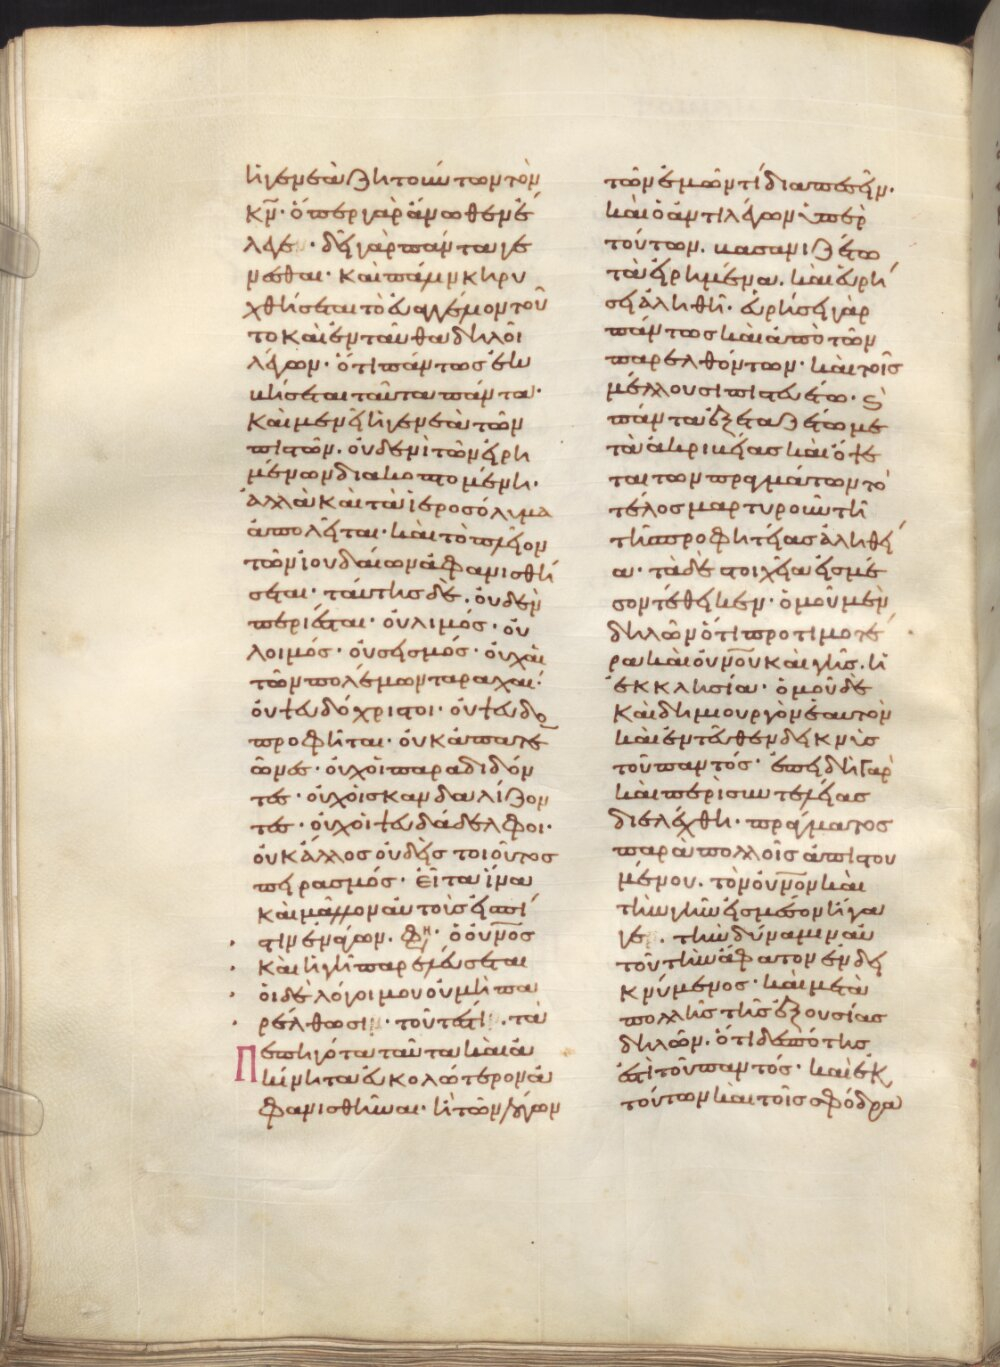 ἡ γενεὰ ζητούντων τὸν
κν̅· ὅπερ γὰρ ἄνωθεν ἔ
λεγε· δεῖ γὰρ πάντα γε
νέσθαι· καὶ πάλιν κηρυ
χθήσεται τὸ εὐαγγέλιον τοῦ
το καὶ ἐνταῦθα δηλοῖ
λέγων· ὅτι πάντως ἐκβ
ήσεται ταῦτα πάντα·
καὶ μενεῖ ἡ γενεὰ τῶν
πιστῶν. οὐδενὶ τῶν εἰρη
μένων διακοπτομένη·
ἀλλὰ καὶ τὰ ἱεροσόλυμα
ἀπολεῖται· καὶ τὸ πλέον
τῶν ἰουδαίων ἀφανισθή
σεται· ταύτης δὲ. οὐδὲν
περιέσται· οὐ λιμός· οὐ
λοιμός· οὐ σεισμός· οὐχ αἱ
τῶν πολέμων ταραχαί·
οὐ ψευδόχριστοι· οὐ ψευδο
προφῆται· οὐκ ἀπατε
ῶνες· οὐχ οἱ παραδιδόν
τες· οὐχ οἱ σκανδαλίζον
τες· οὐχ οἱ ψευδάδελφοι·
οὐκ ἄλλος οὐδεὶς τοιοῦτος
πειρασμός· εἶτα ἵνα
καὶ μᾶλλον αὐτοὺς εἰς πί
στιν ἐνάγων. φη· ὁ οὐνο̅ς
καὶ ἡ γῆ παρελεύσεται
οἱ δὲ λόγοι μου οὐ μὴ πα
ρέλθωσι· τουτέστι. τὰ
πεπηγότα ταῦτα καὶ ἀ
κίνητα εὐκολώτερον ἀ
φανισθῆναι· ἢ τῶν λόγων
τῶν ἐμῶν τί διαπεσεῖν·
καὶ ὁ ἀντιλέγων ὑπὲρ
τούτων. βασανιζέτω
τὰ εἰρημένα. καὶ εὑρή
σει ἀληθῆ· εὑρήσει γὰρ
πάντως καὶ ἀπὸ τῶν
παρελθόντων· καὶ τοῖς
μέλλουσι πιστευέτω· καὶ
πάντα ἐξεταζέτω με
τὰ ἀκριβείας καὶ ὄψε
ται τῶν πραγμάτων τὸ
τέλος μαρτυροῦν τῇ
τῆς προφητείας ἀληθεί
α· τὰ δὲ στοιχεῖα εἰς μέ
σον τέθεικεν· ὁμοῦ μὲν
δηλῶν ὅτι προτιμοτέ
ρα καὶ οὐνο̅υ καὶ γῆς. ἡ
ἐκκλησία· ὁμοῦ δὲ
καὶ δημιουργὸν ἑαυτὸν
καὶ ἐντεῦθεν δεικνὺς
τοῦ παντός· ἐπειδὴ γὰρ
καὶ περὶ συντελείας
διελέχθη· πράγματος
παρὰ πολλοῖς ἀπιστου
μένου. τὸν οὐνο̅ν καὶ
τὴν γῆν εἰς μέσον ἤγα
γε. τὴν δύναμιν αὐ
τοῦ τὴν ἄφατον ἐνδει
κνύμενος· καὶ μετὰ
πολλῆς τῆς ἐξουσίας
δηλῶν. ὅτι δεσπότης
ἐστὶ τοῦ παντός· καὶ ἐκ
τούτων καὶ τοῖς σφόδρα